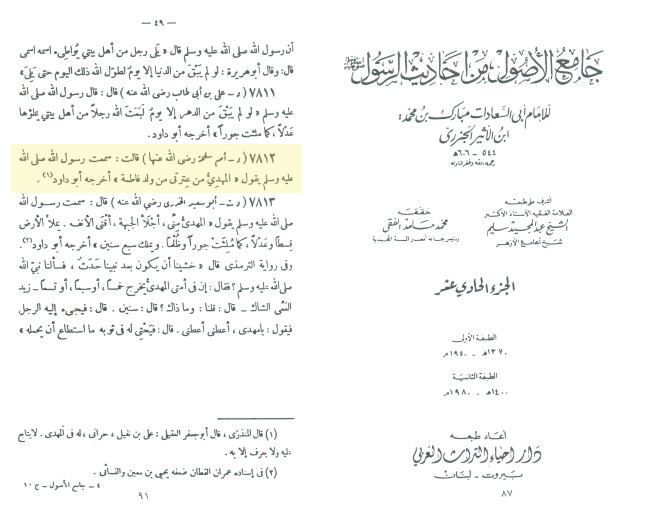 جامع الأصول من أحاديث الرسول
للإمام أبي السعادات مبارك بن محمد:
ابن الأثير الجزري
٥٤٤ - ٦٠٦ هـ
رحمه الله وغفر له
أشرف على طبعه
العلامة الفقيه الأستاذ الأكبر
الشيخ عبد المجيد سليم
شيخ الجامع الأزهر
حققه
محمد حامد الفقي
ورئيس جماعة أنصار السنة المحمدية
الجزء الحادي عشر
الطبعة الأولى
١٣٧٠ هـ - ١٩٥٠ م
الطبعة الثانية
١٤٠٠ هـ - ١٩٨٠ م
أعاد طبعه
دار إحياء التراث العربي
بيروت - لبنان
٨٧
— ٤٩ —
أن رسول الله صلى الله عليه وسلم قال « يَلِى رجل من أهل بيتى يُواطِىء اسمه اسمى
قال: وقال أبو هريرة : لو لم يَبْقَ من الدنيا إلا يومٌ لطول الله ذلك اليوم حتى يَلِىَ »
٧٨١١ ( د ـ على بن أبى طالب رضى الله عنه ) قال : قال رسول الله صلى الله
عليه وسلم « لو لم يَبْقَ من الدهر إلا يومٌ لبَعَثَ الله رجلاً من أهل بيتى يملؤها
عَدْلاً ، كما ملئت جوراً » أخرجه أبو داود .
٧٨١٢ ( د ـ أم سلمة رضى الله عنها ) قالت : سمعت رسول الله صلى الله
عليه وسلم يقول « المهدىُّ من عترتى من ولد فاطمة » أخرجه أبو داود (١) .
٧٨١٣ ( د ت ـ أبو سعيد الخدرى رضى الله عنه ) قال : سمعت رسول الله
صلى الله عليه وسلم يقول « المهدىُّ منِّى ، أجْلَى الجبهة ، أقْنَى الأنف . يملأ الأرض
قِسطاً وعَدْلاً ، كما مُلِئَتْ جوراً وظُلْماً . ويملك سبع سنين » أخرجه أبو داود (٢) .
وفى رواية الترمذى قال « خشينا أن يكون بعد نبينا حَدَثٌ ، فسألنا نبىّ الله
صلى الله عليه وسلم ؟ فقال : إن فى أمتى المهدىُّ يخرج خمساً ، أو سبعاً ، أو تسعاً ـ زيد
العَمِّى الشاك ـ قال : قلنا : وما ذاك ؟ قال : سنين . قال : فيجىء إليه الرجل
فيقول : يا مهدى ، أعطنى أعطنى . قال : فيَحْثِى له فى ثوبه ما استطاع أن يحمله »
(١) قال المنذرى ، قال أبو جعفر العقيلى : على بن نفيل ، حرانى ، له فى المهدى . لا يتابع
عليه ولا يعرف إلا به .
(٢) فى إسناده عمران القطان ضعفه يحيى بن معين والنسائى .
٤ ـ جامع الأصول ـ ج ١٠
٩١